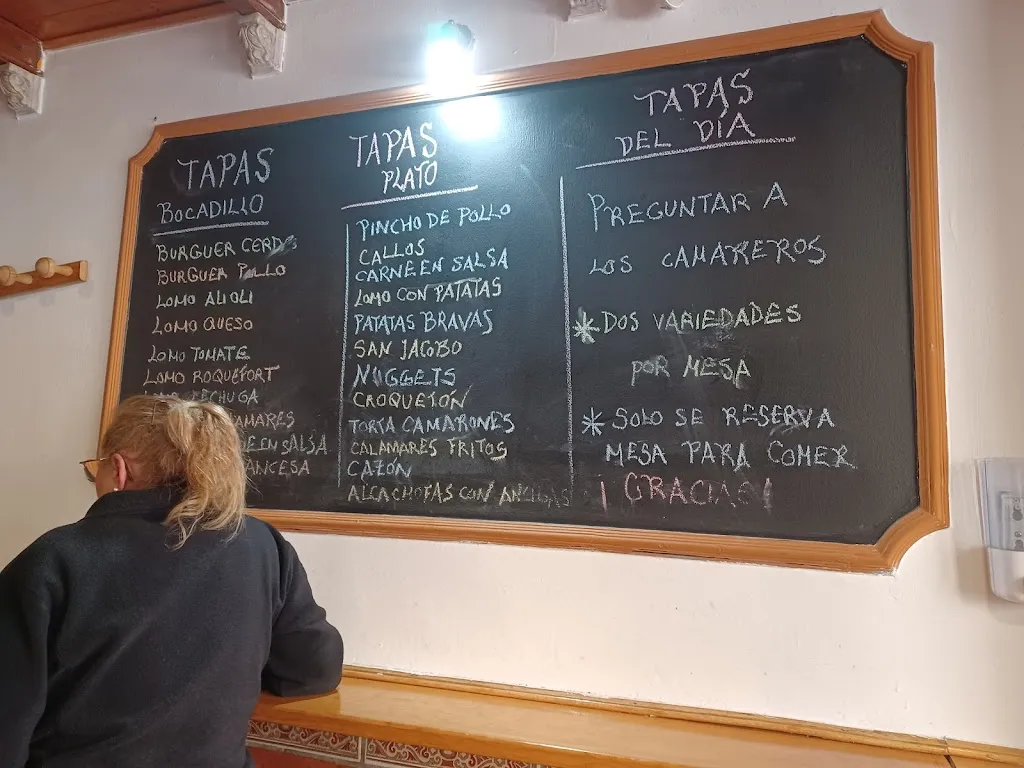 TAPAS
BOCADILLO
BURGUER CERDO
BURGUER POLLO
LOMO ALIOLI
LOMO QUESO
LOMO TOMATE
LOMO ROQUEFORT
TAPAS
PLATO
PINCHO DE POLLO
CALLOS
CARNE EN SALSA
LOMO CON PATATAS
PATATAS BRAVAS
SAN JACOBO
NUGGETS
CROQUETON
TORTA CAMARONES
CALAMARES FRITOS
CAZON
ALCACHOFAS CON
TAPAS
DEL DÍA
PREGUNTAR A
LOS CAMAREROS
* DOS VARIEDADES
POR MESA
* SOLO SE RESERVA
MESA PARA COMER
¡GRACIAS!